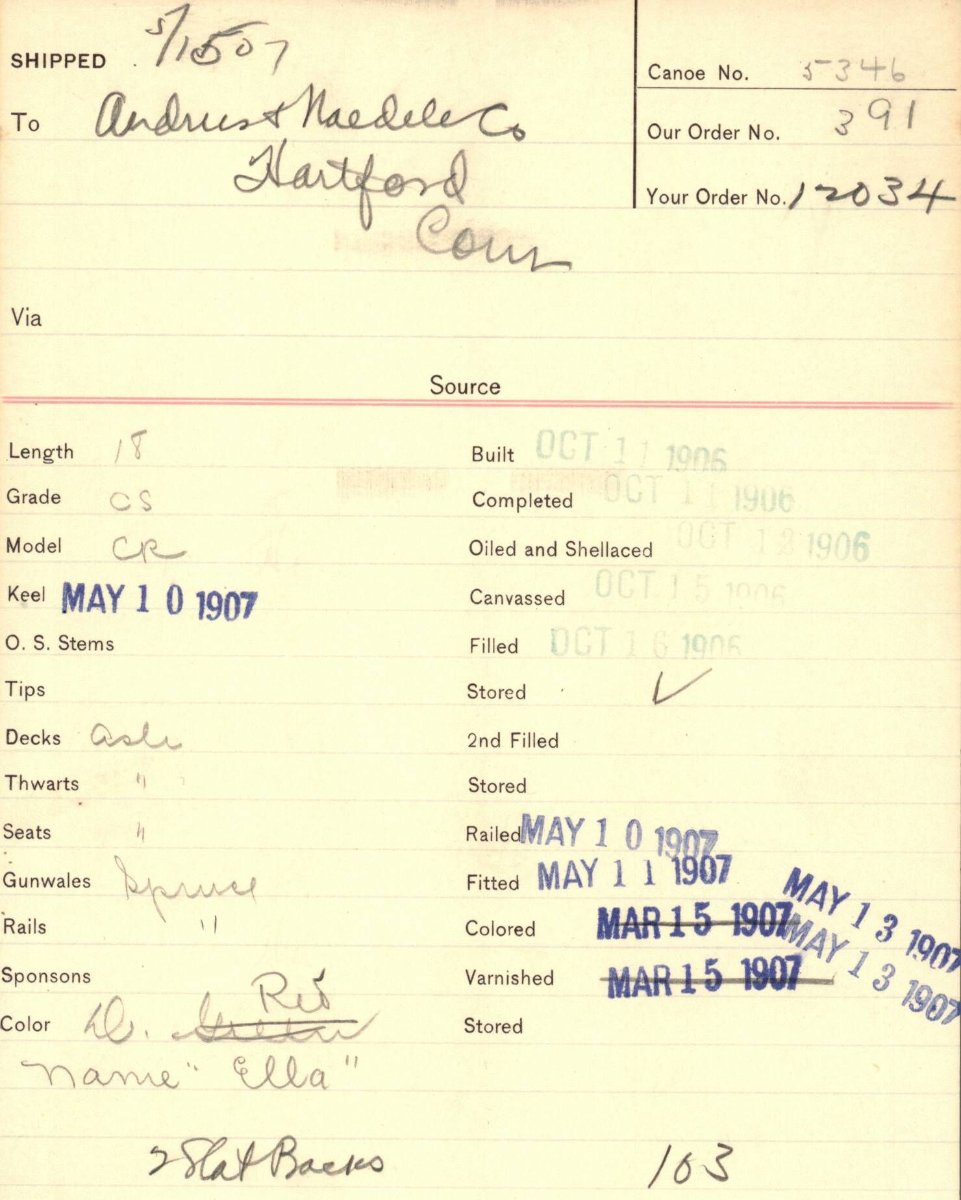 SHIPPED 5/15 07
To Andrus & Naedele Co
Hartford
Conn
Canoe No. 5346
Our Order No. 391
Your Order No. 12034
Via
Source
Length 18
Grade CS
Model CR
Keel MAY 10 1907
O. S. Stems
Tips
Decks ash
Thwarts "
Seats "
Gunwales Spruce
Rails "
Sponsons
Red
Color D. Green
Name "Ella"
2 Slat Backs
Built OCT 11 1906
Completed OCT 11 1906
Oiled and Shellaced OCT 12 1906
Canvassed OCT 15 1906
Filled OCT 16 1906
Stored ✓
2nd Filled
Stored
Railed MAY 10 1907
Fitted MAY 11 1907
Colored MAR 15 1907 MAY 13 1907
Varnished MAR 15 1907 MAY 13 1907
Stored
103